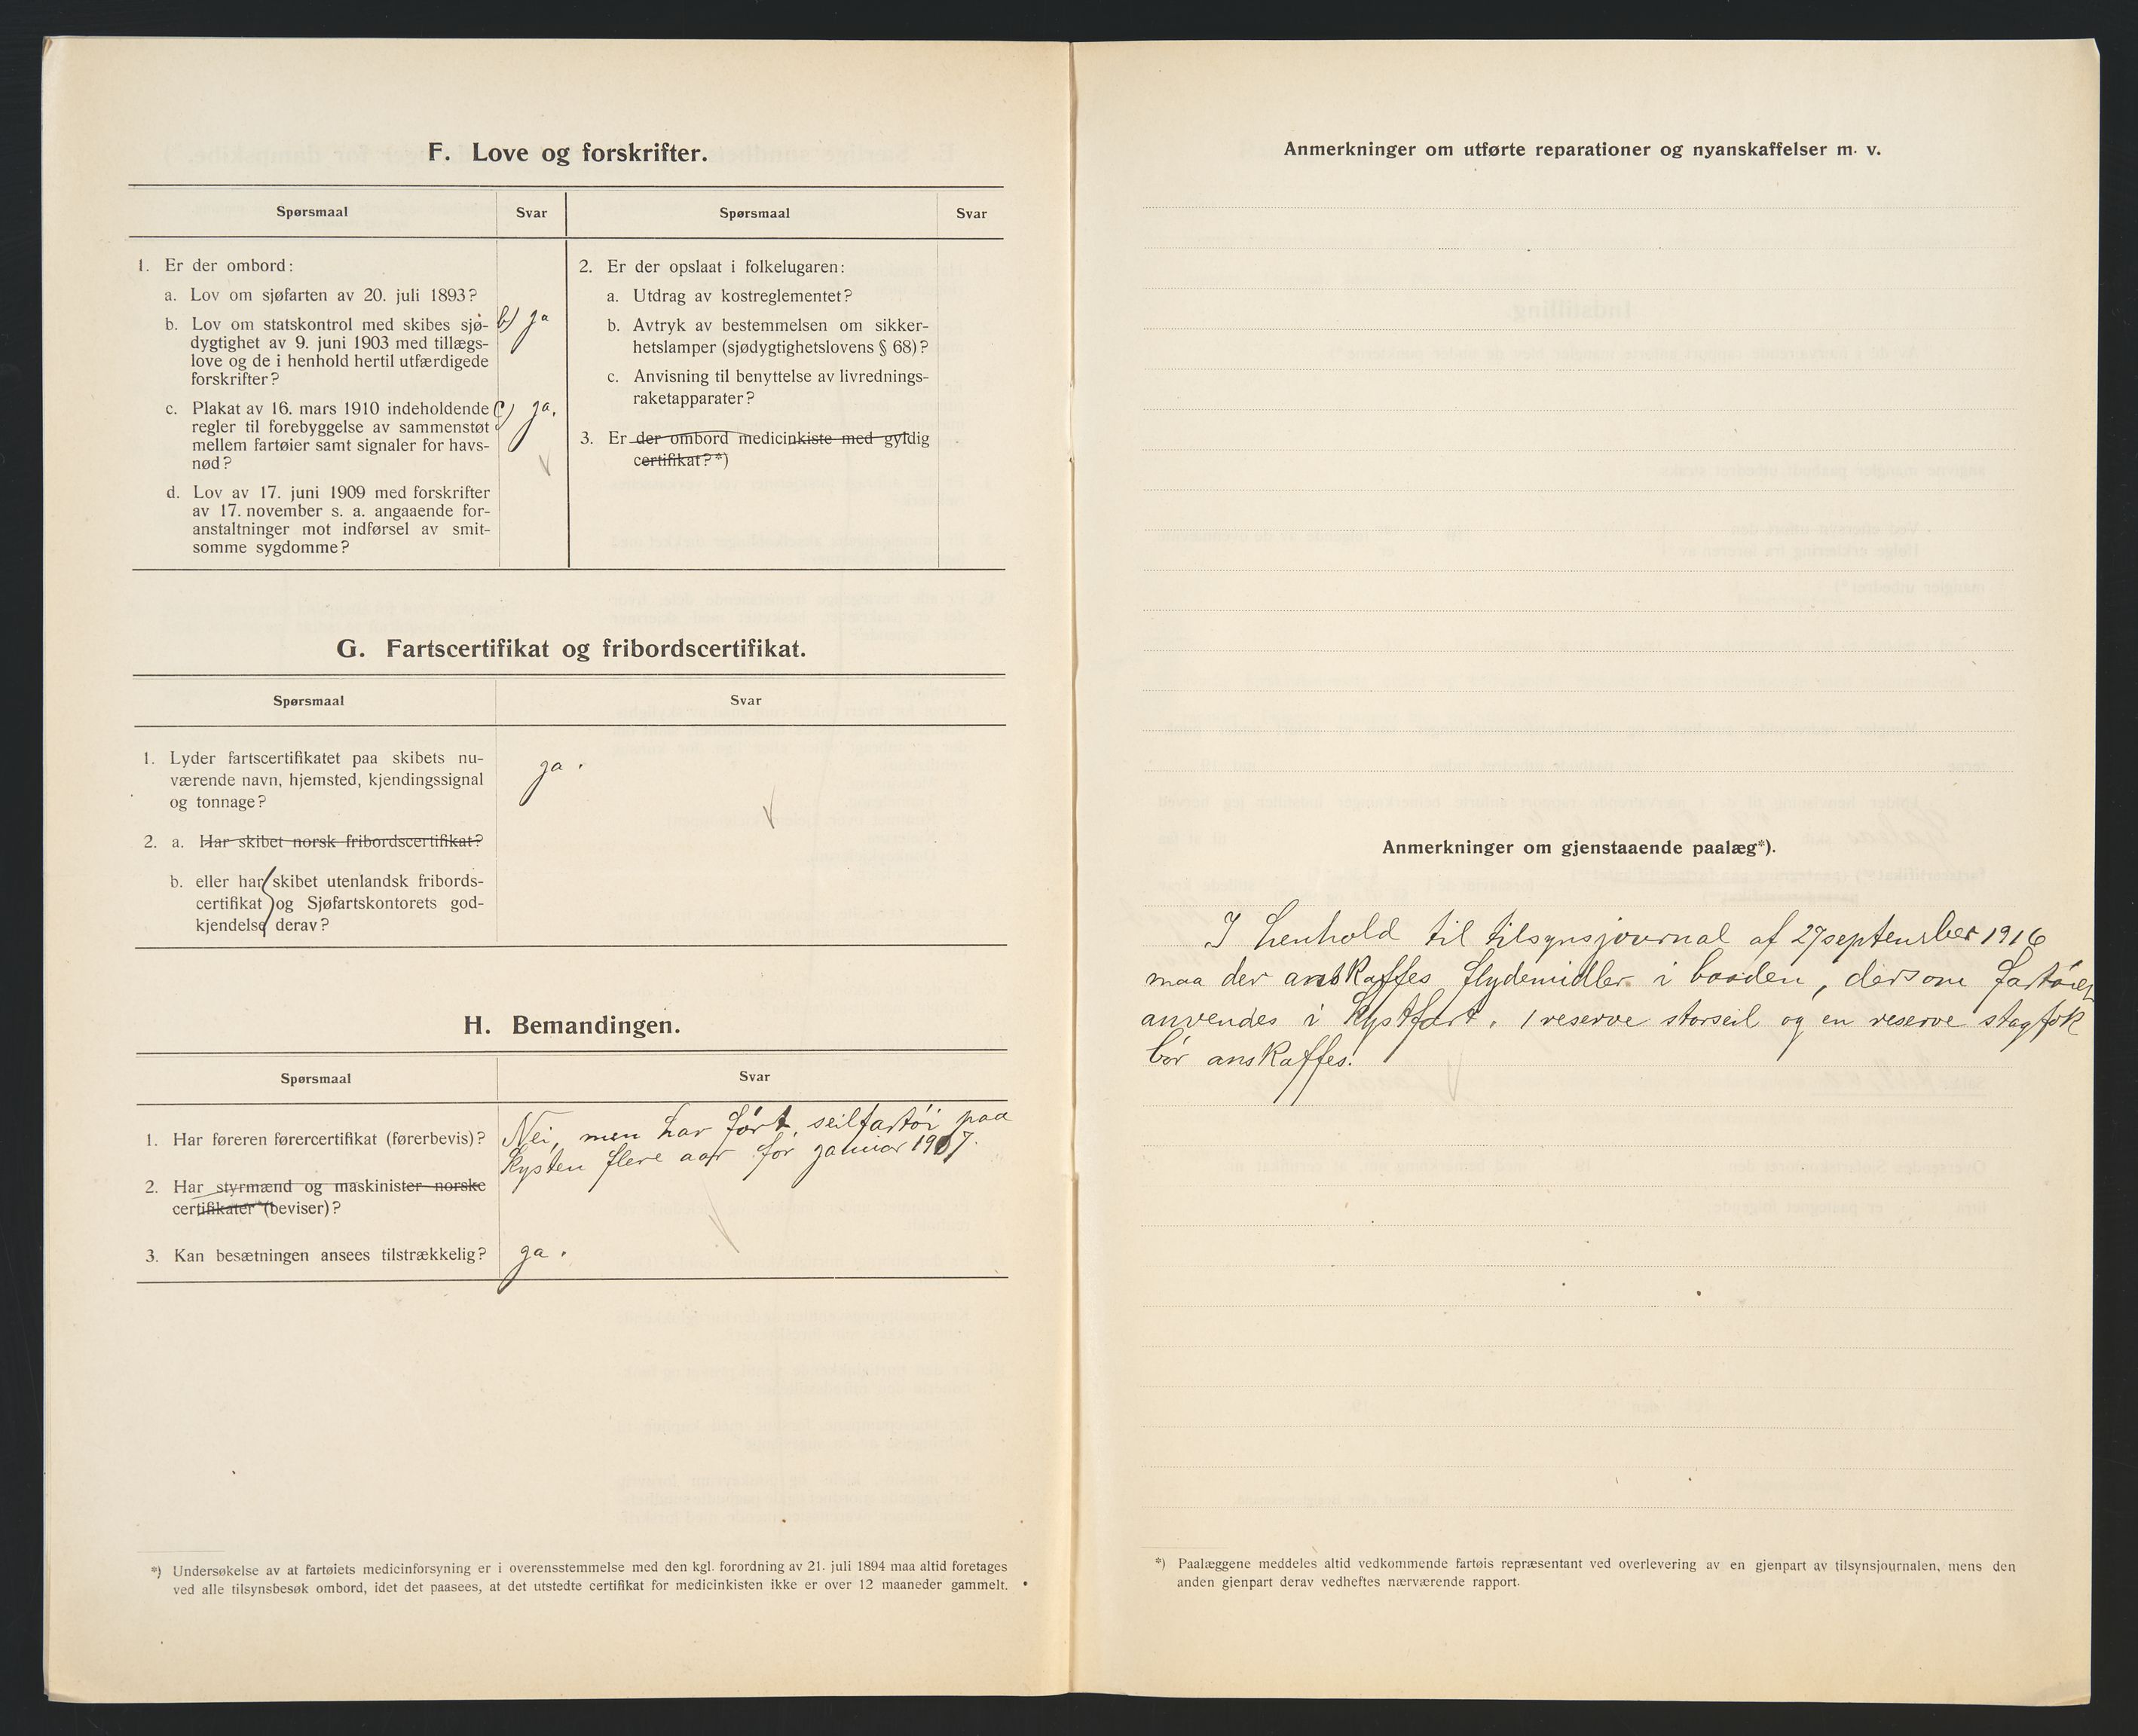 F. Love og forskrifter.
Spørsmaal
Svar
1. Er der ombord:
a. Lov om sjøfarten av 20. juli 1893?
b. Lov om statskontrol med skibes sjø-
dygtighet av 9. juni 1903 med tillægs-
love og de i henhold hertil utfærdigede
forskrifter?
b) ja
c. Plakat av 16. mars 1910 indeholdende
regler til forebyggelse av sammenstøt
mellem fartøier samt signaler for havs-
nød?
c) ja.
d. Lov av 17. juni 1909 med forskrifter
av 17. november s. a. angaaende for-
anstaltninger mot indførsel av smit-
somme sygdomme?
Spørsmaal
Svar
2. Er der opslaat i folkelugaren:
a. Utdrag av kostreglementet?
b. Avtryk av bestemmelsen om sikker-
hetslamper (sjødygtighetslovens § 68)?
c. Anvisning til benyttelse av livrednings-
raketapparater?
3. Er der ombord medicinkiste med gyldig
certifikat?*)
G. Fartscertifikat og fribordscertifikat.
Spørsmaal
Svar
1. Lyder fartscertifikatet paa skibets nu-
værende navn, hjemsted, kjendingssignal
og tonnage?
ja.
2. a. Har skibet norsk fribordscertifikat?
b. eller har skibet utenlandsk fribords-
certifikat og Sjøfartskontorets god-
kjendelse derav?
H. Bemandingen.
Spørsmaal
Svar
1. Har føreren førercertifikat (førerbevis)?
Nei, men har ført seilfartöi paa
Kysten flere aar før januar 1907.
2. Har styrmænd og maskinister norske
certifikater (beviser)?
3. Kan besætningen ansees tilstrækkelig?
ja.
*) Undersøkelse av at fartøiets medicinforsyning er i overensstemmelse med den kgl. forordning av 21. juli 1894 maa altid foretages
ved alle tilsynsbesøk ombord, idet det paasees, at det utstedte certifikat for medicinkisten ikke er over 12 maaneder gammelt.
Anmerkninger om utførte reparationer og nyanskaffelser m. v.
Anmerkninger om gjenstaaende paalæg*).
I henhold til tilsynsjournal af 27 september 1916
maa der anskaffes flydemidler i baaden, dersom fartöiet
anvendes i Kystfart. 1 reserve storseil og en reserve stagfok
bör anskaffes.
*) Paalæggene meddeles altid vedkommende fartøis repræsentant ved overlevering av en gjenpart av tilsynsjournalen, mens den
anden gjenpart derav vedheftes nærværende rapport.